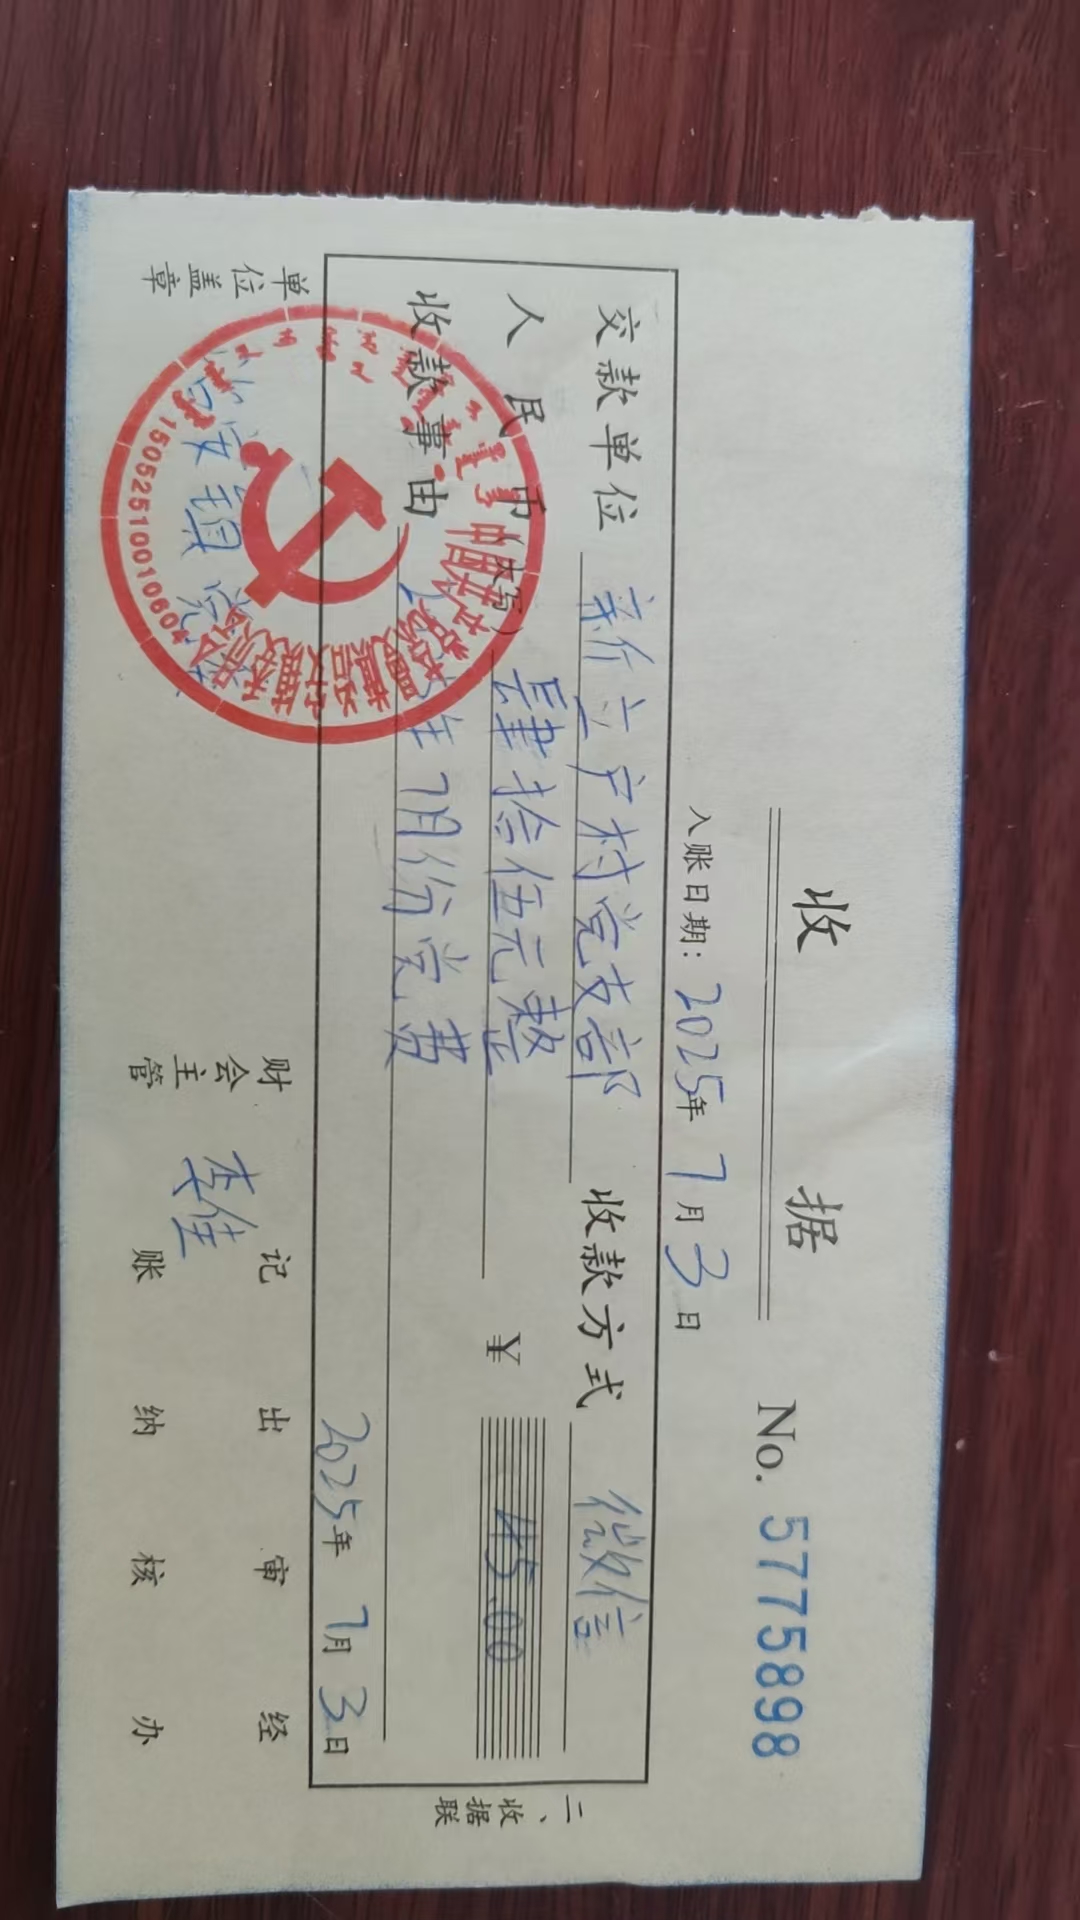 收 据
No. 5775898
入账日期: 2025年 7月 3日
交款单位 新立户村党支部 收款方式 微信
人民币(大写) 肆拾伍元整 ¥ 45.00
收款事由 年7月份党费
2025年 7月 3日
二、收据联
单位盖章 财会主管 记账 出纳 审核 经办
镇党
李佳
中国共产党
15052510010604